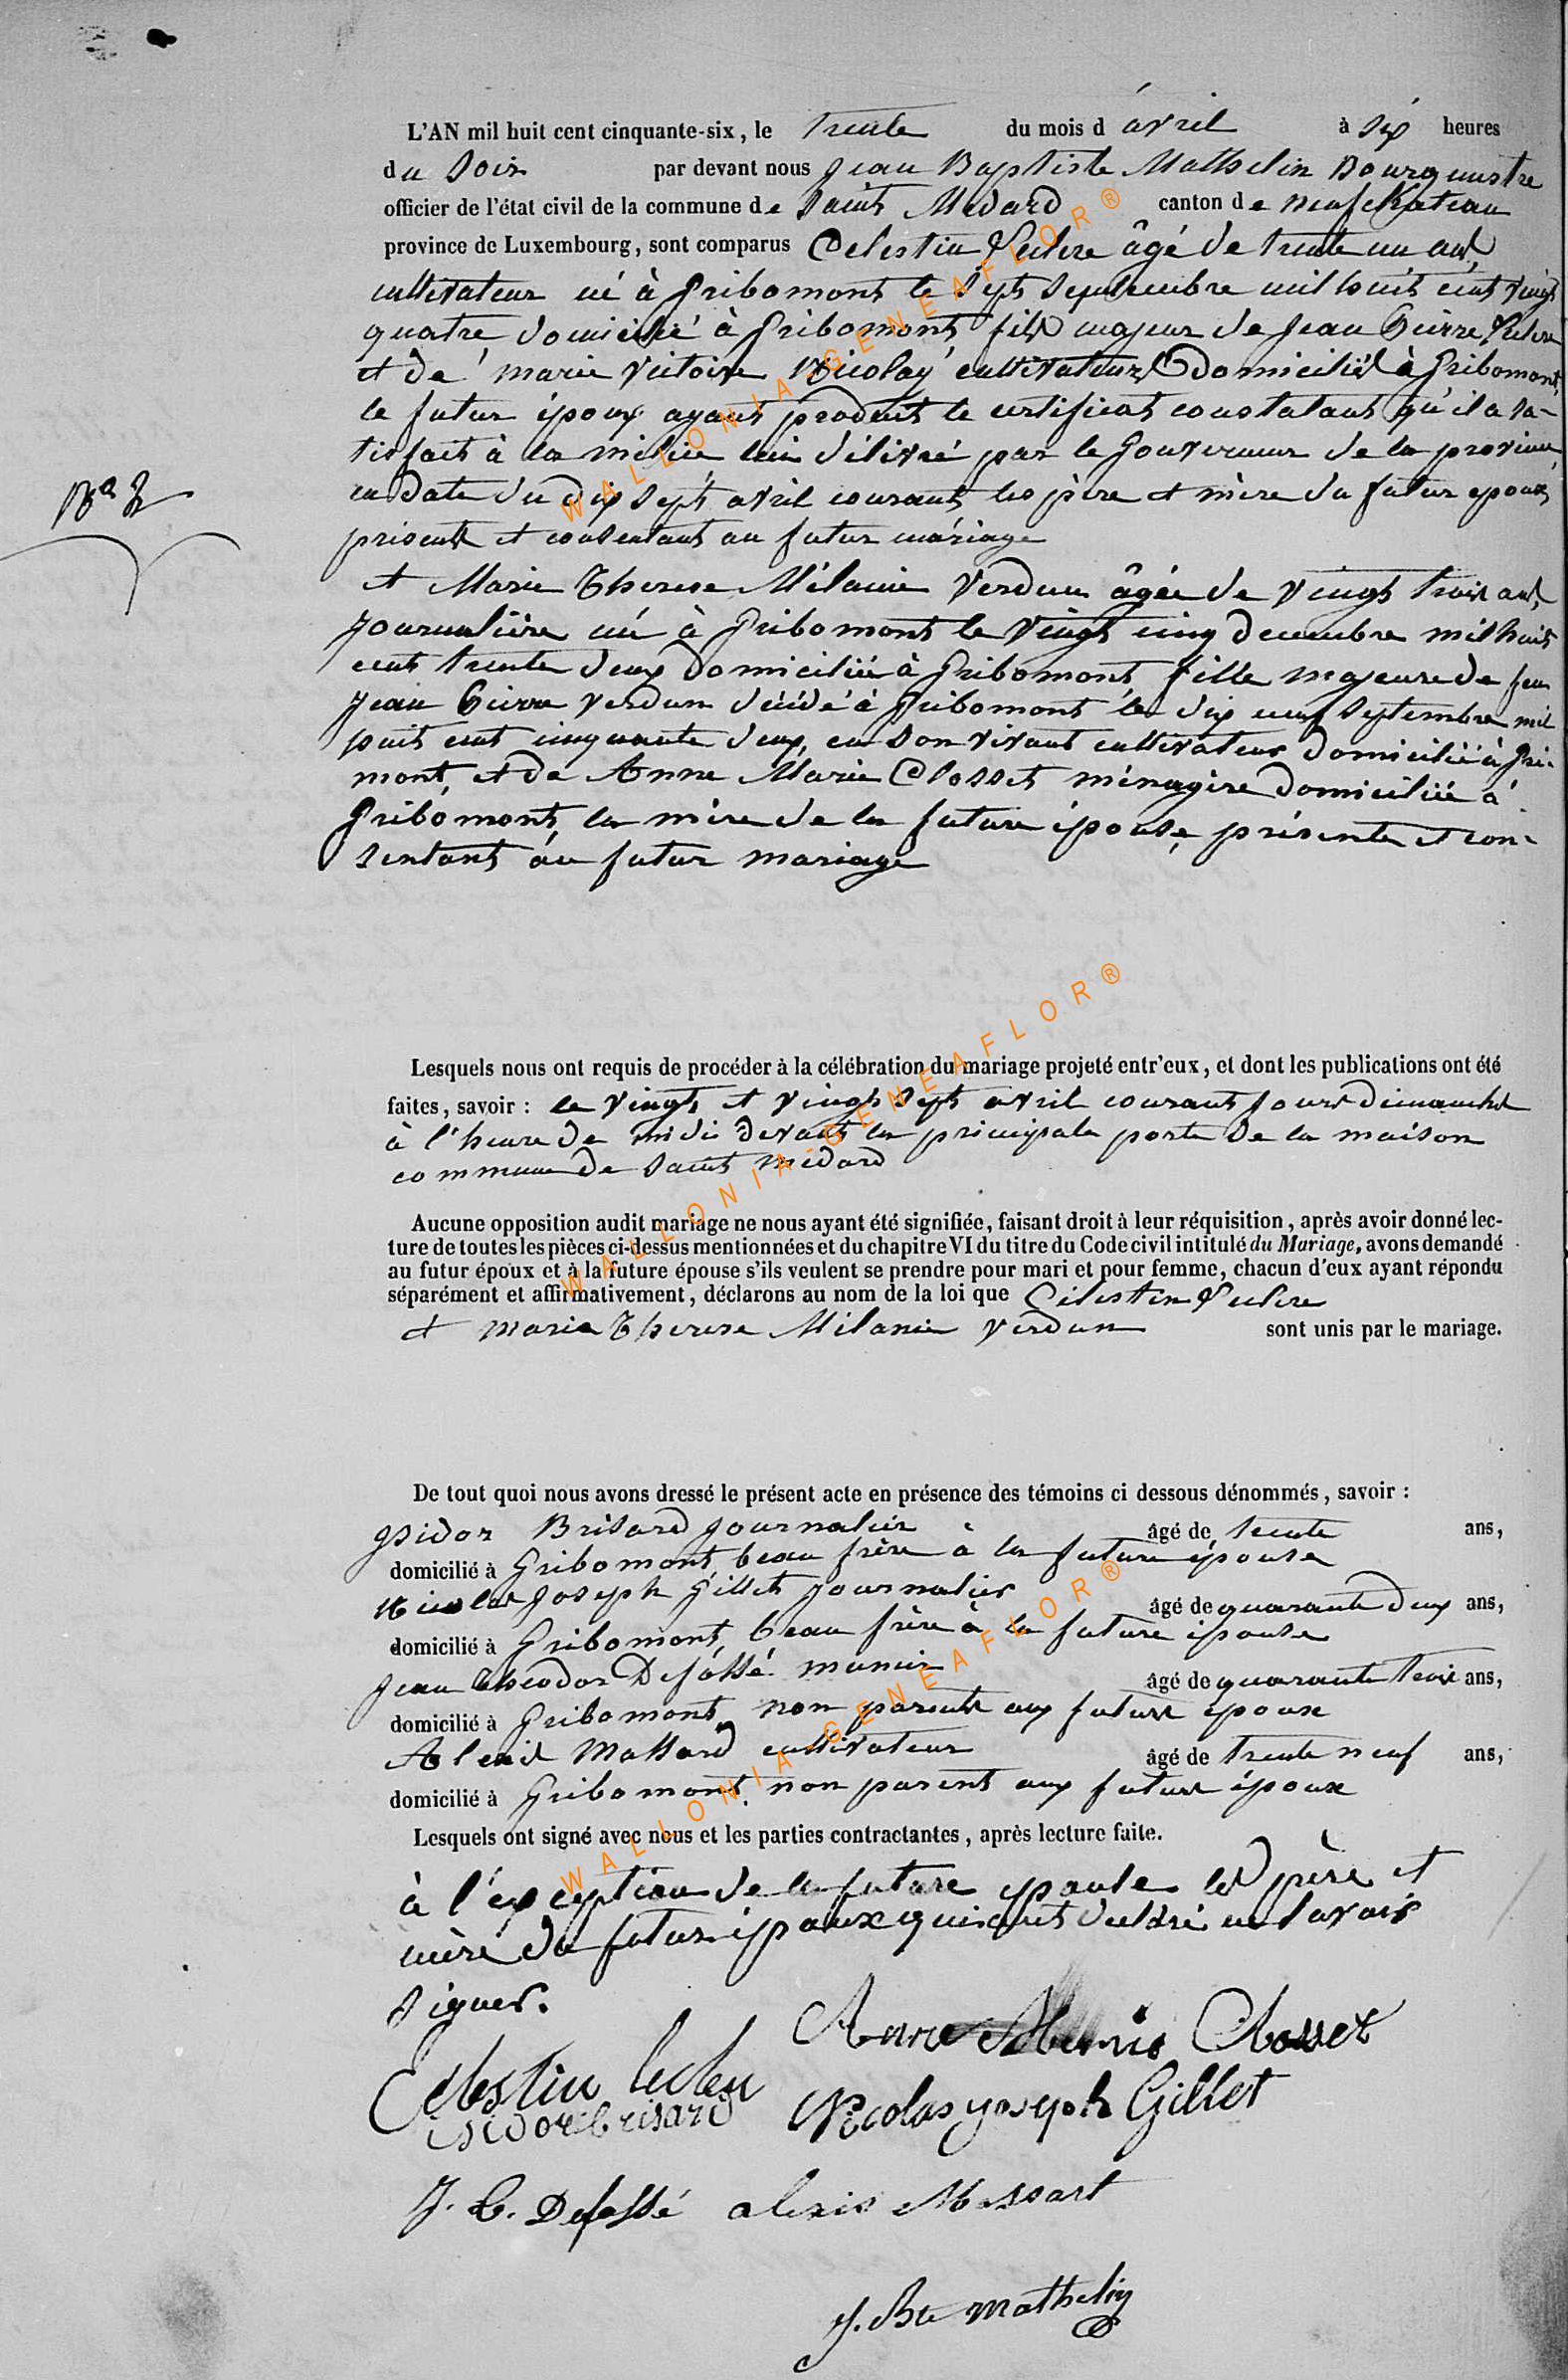 L'AN mil huit cent cinquante-six, le trente du mois d'avril à six heures
du Soir par devant nous Jean Baptiste Mathelin Bourgmestre
officier de l'état civil de la commune de Saint Médard canton de neufchateau
province de Luxembourg, sont comparus Celestin Leclere âgé de trente un ans,
cultivateur né à Gribomont le Sept Septembre mil huit cent vingt
quatre domicilié à Gribomont, fils majeur de Jean Pierre Leclere
et de marie Victoire Nicolay cultivateurs domiciliés à Gribomont,
le futur époux ayant produit le certificat constatant qu'il a sa-
tisfait à la milice lui délivré par le Gouverneur de la province,
en date du dix sept avril courant les père et mère du futur epoux,
présents et consentants au futur mariage
N° 2
et Marie Therese Mélanie Verdun âgée de Vingt trois ans,
journalière née à Gribomont le vingt cinq decembre mil huit
cent trente deux domiciliée à Gribomont fille majeure de feu
Jean Pierre Verdun décédé à Gribomont le dix neuf Septembre mil
huit cent cinquante deux, en son vivant cultivateur domicilié à Gri-
mont, et de Anne Marie Closset ménagère domiciliée à
Gribomont, la mère de la future épouse, présente et con-
sentant au futur mariage
Lesquels nous ont requis de procéder à la célébration du mariage projeté entr'eux, et dont les publications ont été
faites, savoir : le vingt et vingt sept avril courant jours dimanche
à l'heure de midi devant la principale porte de la maison
commune de Saint médard
Aucune opposition audit mariage ne nous ayant été signifiée, faisant droit à leur réquisition, après avoir donné lec-
ture de toutes les pièces ci-dessus mentionnées et du chapitre VI du titre du Code civil intitulé du Mariage, avons demandé
au futur époux et à la future épouse s'ils veulent se prendre pour mari et pour femme, chacun d'eux ayant répondu
séparément et affirmativement, déclarons au nom de la loi que Célestin Leclere
et Marie Therese Mélanie Verdun sont unis par le mariage.
De tout quoi nous avons dressé le présent acte en présence des témoins ci dessous dénommés, savoir :
Isidor Brisard journalier âgé de trente ans,
domicilié à Gribomont, beau frère à la future épouse
Nicolas Joseph Gillet journalier âgé de quarante deux ans,
domicilié à Gribomont, beau frère à la future épouse
Jean Theodor Defossé munier âgé de quarante trois ans,
domicilié à Gribomont, non parent aux futurs époux
Alexis Massard cultivateur âgé de trente neuf ans,
domicilié à Gribomont, non parent aux futurs époux
Lesquels ont signé avec nous et les parties contractantes, après lecture faite.
à l'exception de la future epouse les père et
mère du futur époux qui ont declaré ne Savoir
Signer.
Anne Marie Closset
Celestin lecler
isidore brisard Nicolas joseph Gillet
J. T. Defossé alexis Massart
J. Bte Mathelin
WALLONIA-GENEAFLOR®
WALLONIA-GENEAFLOR®
WALLONIA-GENEAFLOR®